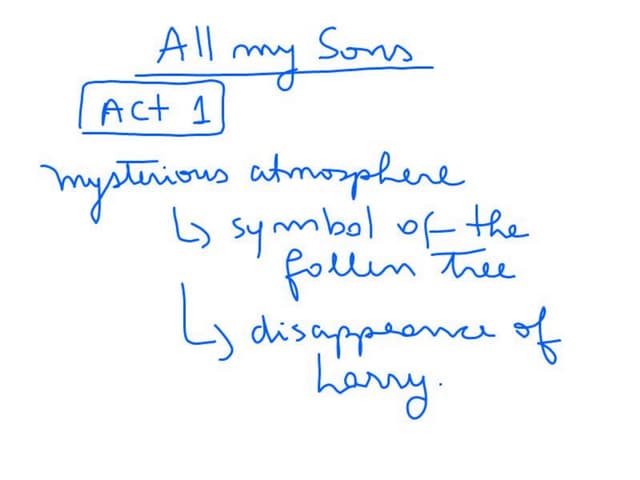 All my Sons
Act 1
mysterious atmosphere
↳ symbol of the
fallen tree
↳ disappearance of
Larry.